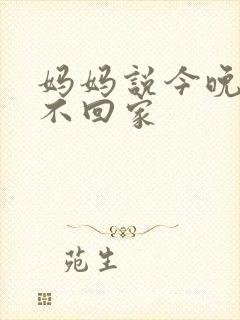 妈妈説今晚
不回家
苑生